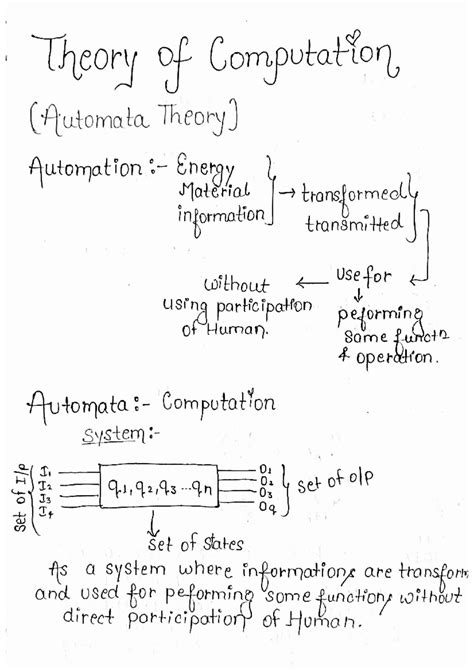 Theory of Computation
(Automata Theory)
Automation :- Energy
Material
information
→ transformed
transmitted
use for
↓
peforming
some functn
& operation.
← without
using participation
of Human.
Automata :- Computation
System :-
Set of I/p
I1
I2
I3
I4
q1, q2, q3 ...qn
O1
O2
O3
Oq
set of O/P
set of states
As a system where informations are transform
and used for peforming some functions without
direct participation of Human.